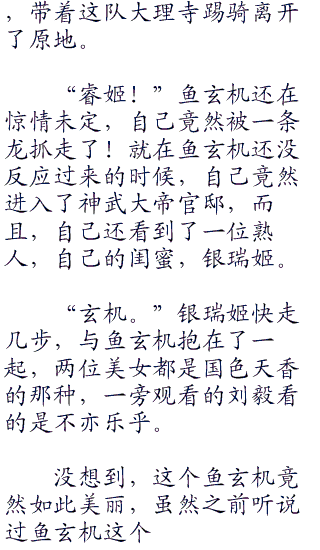 ，带着这队大理寺踢骑离开
了原地。
“睿姬！”鱼玄机还在
惊情未定，自己竟然被一条
龙抓走了！就在鱼玄机还没
反应过来的时候，自己竟然
进入了神武大帝官邸，而
且，自己还看到了一位熟
人，自己的闺蜜，银瑞姬。
“玄机。”银瑞姬快走
几步，与鱼玄机抱在了一
起，两位美女都是国色天香
的那种，一旁观看的刘毅看
的是不亦乐乎。
没想到，这个鱼玄机竟
然如此美丽，虽然之前听说
过鱼玄机这个